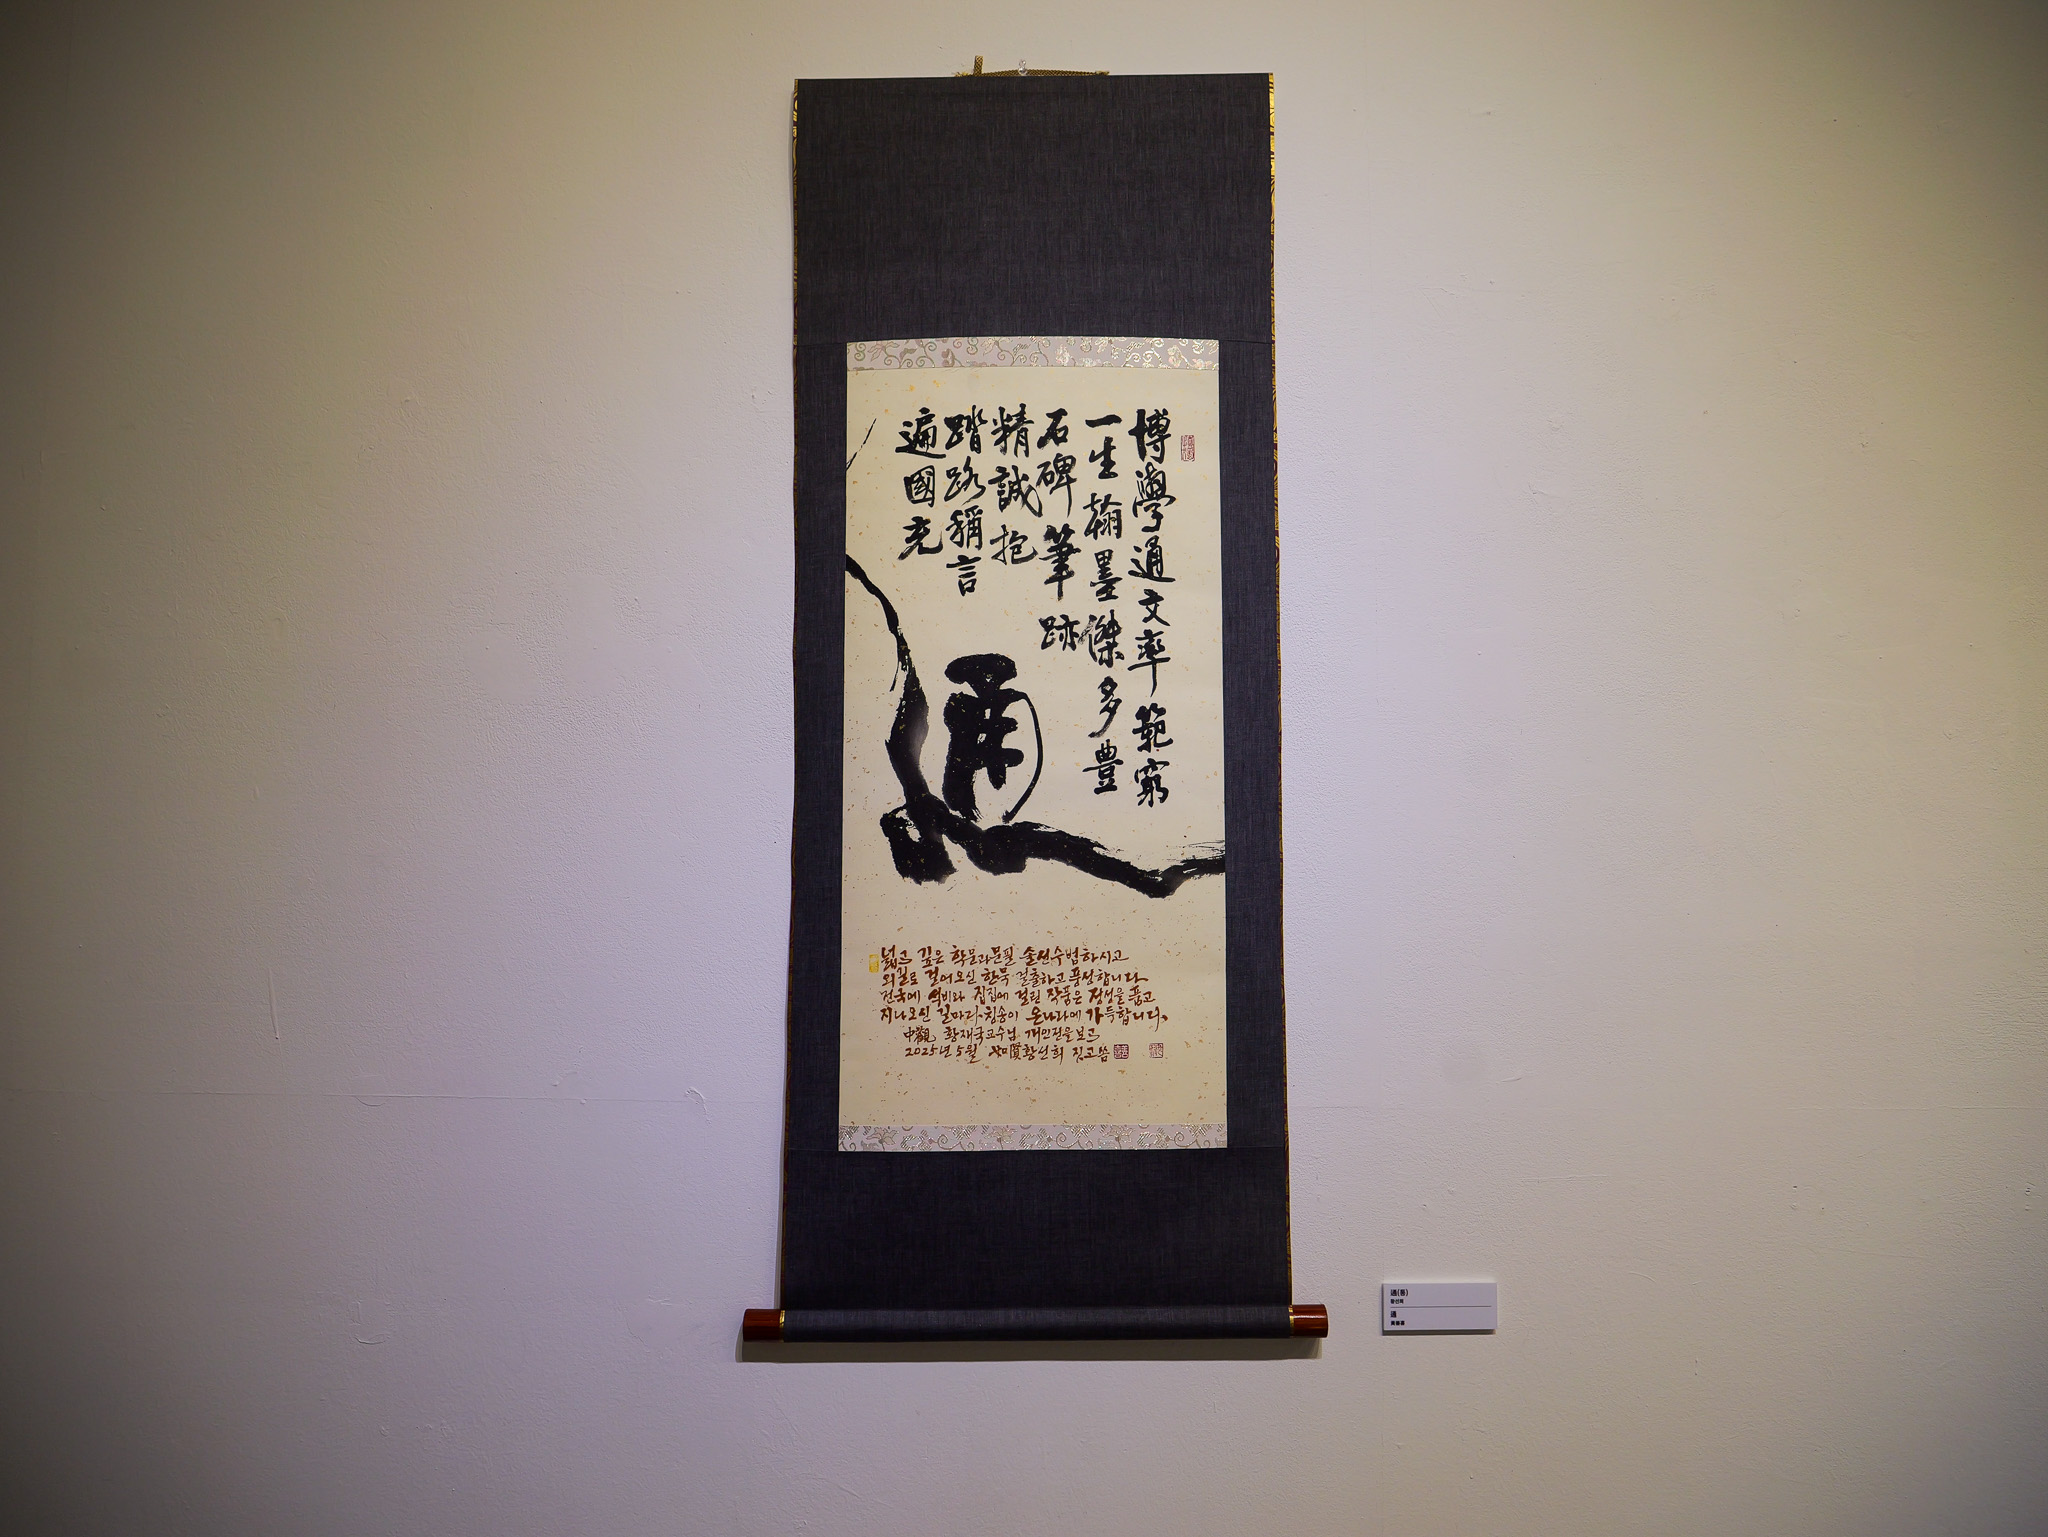 博學通文率範窮
一生翰墨傑多豊
石碑筆跡
精誠抱
踏路稱言
遍國充
通
넓고 깊은 학문과 문필 솔선수범하시고
외길로 걸어오신 한묵 걸출하고 풍성합니다
전국에 석비와 집집에 걸린 작품은 정성을 품고
지나오신 길마다 칭송이 온나라에 가득합니다.
中觀 황재국교수님 개인전을 보고
2025년 5월 황선희 짓고씀
通(통)
황선희
通